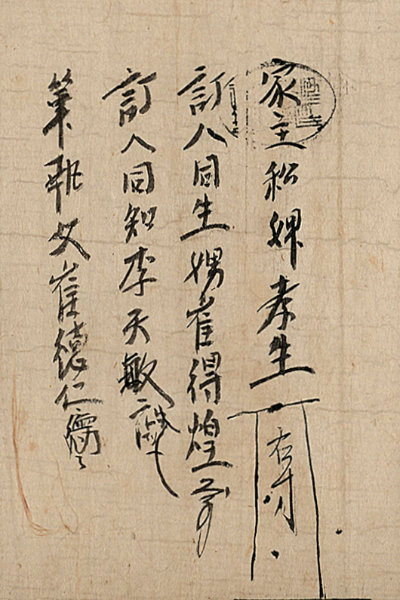 家主私婢孝生
右寸
訂人同生娚崔得煌
訂人同知李天敏
筆執父崔德仁